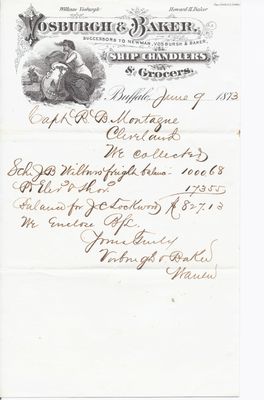 William Vosburgh Howard H. Baker
VOSBURGH & BAKER,
SUCCESSORS TO NEWMAN, VOSBURGH & BAKER,
SHIP CHANDLERS
& Grocers.
Buffalo, June 9 1873
Capt R B Montague
Cleveland
We collected
Sch J B Wilbur freight balance 1000 68
173 55
Balance for J C Lockwood $ 827.13
We Enclose
Yours Truly
Vosburgh & Baker